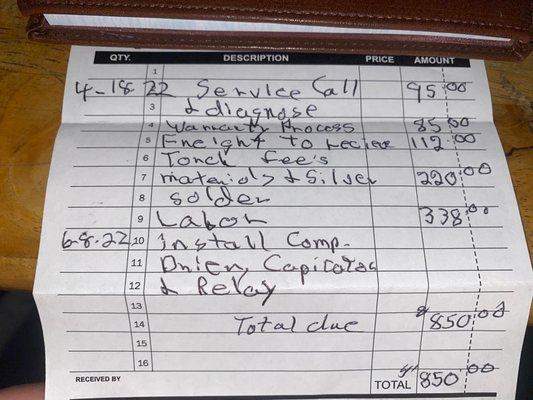 QTY. DESCRIPTION PRICE AMOUNT
1
4-18-22 2 Service Call 95.00
3 & diagnose
4 Warranty Process 85.00
5 Freight to recieve 112.00
6 Torch fee's
7 materials & Silver 220.00
8 solder
9 Labor 338.00
6-8-22 10 install Comp.
11 Drier, Capicator
12 & Relay
13
14 Total due $850.00
15
16
RECEIVED BY TOTAL $850.00